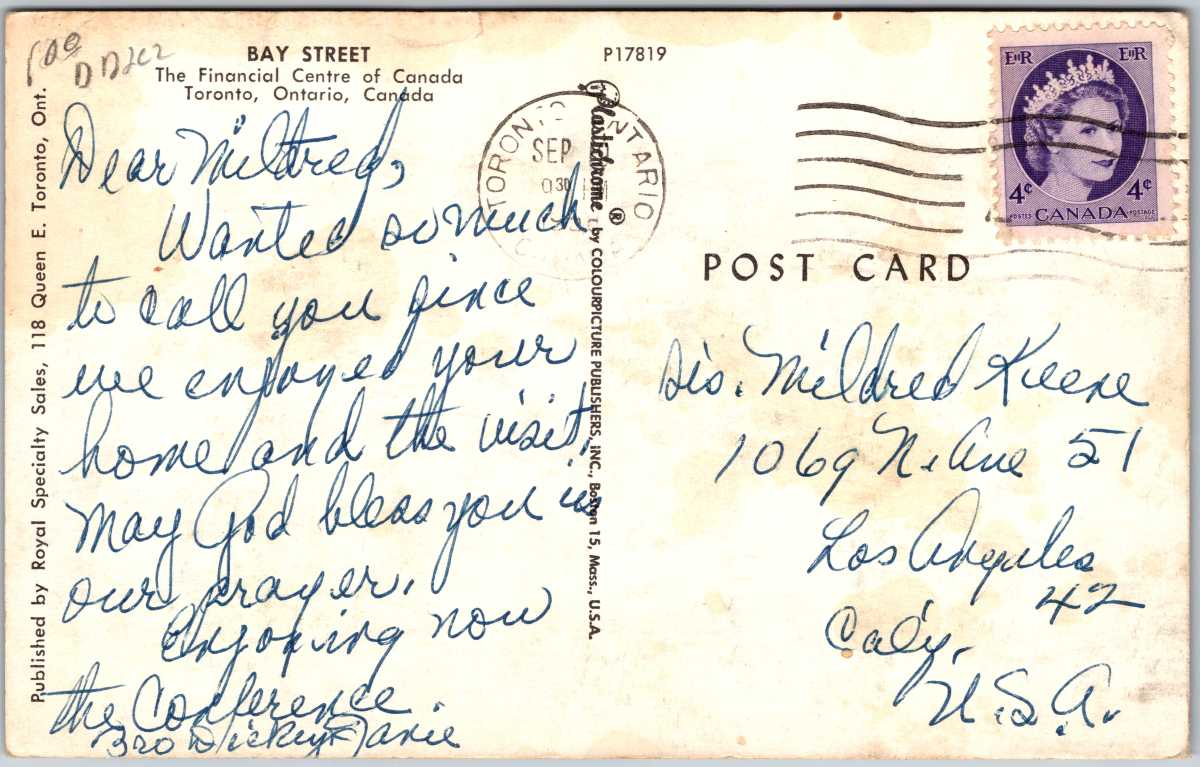 BAY STREET
The Financial Centre of Canada
Toronto, Ontario, Canada
P17819
Published by Royal Specialty Sales, 118 Queen E. Toronto, Ont.
Dear Mildred,
Wanted so much
to call you since
we enjoyed your
home and the visit.
May God bless you is
our prayer.
Enjoying now
the Conference.
320 Dickey
Plastichrome ® by COLOURPICTURE PUBLISHERS, INC., Boston 15, Mass., U.S.A.
TORONTO ONTARIO
SEP
EIIR EIIR
4¢ 4¢
POSTES CANADA POSTAGE
POST CARD
Sis. Mildred Keene
1069 N. Ave 51
Los Angeles
42
Calif.
U.S.A.